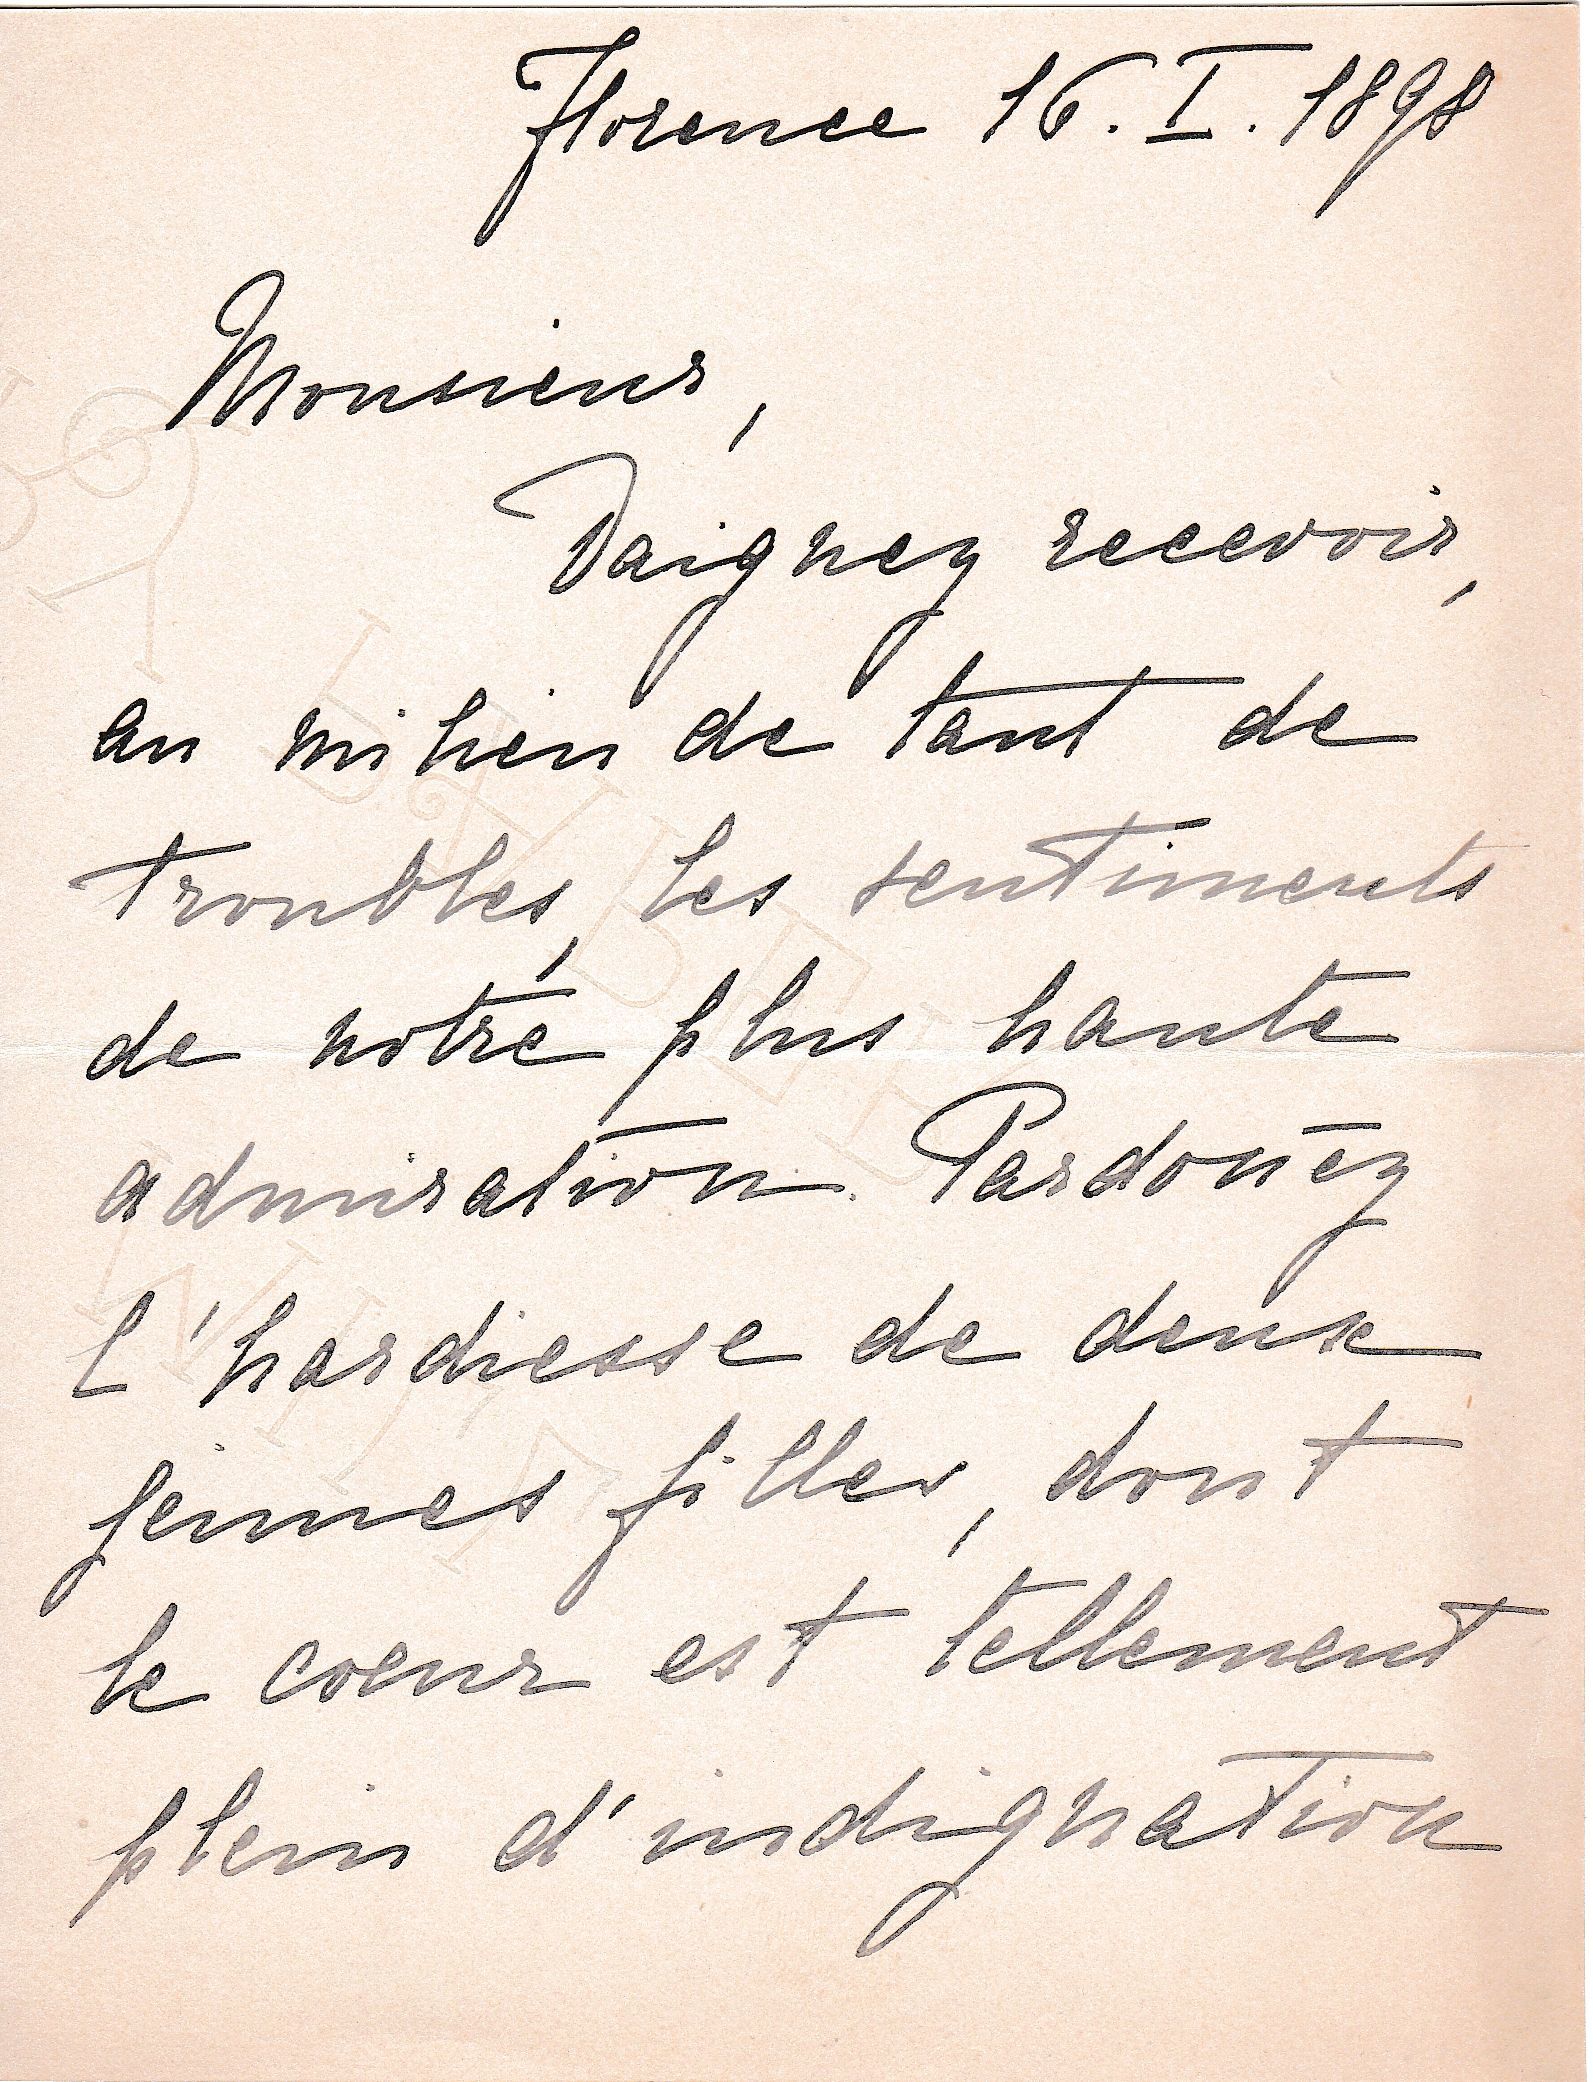 Florence 16. I. 1898
Monsieur,
Daignez recevoir,
au milieu de tant de
troubles, les sentiments
de notre plus haute
admiration. Pardon̄ez
l'hardiesse de deux
jeunes filles, dont
le coeur est tellement
plein d'indignation